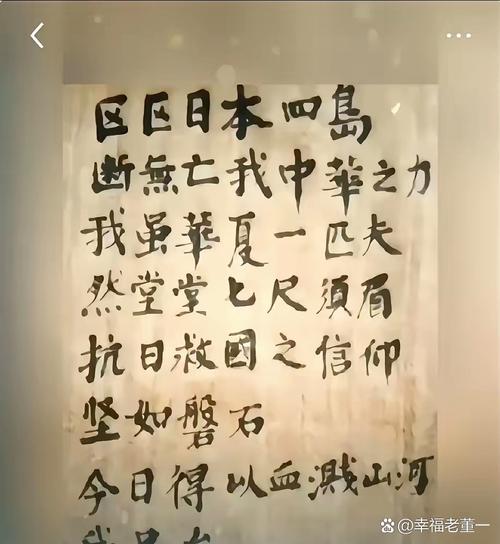 区区日本四島
断無亡我中華之力
我虽華夏一匹夫
然堂堂七尺須眉
抗日救國之信仰
坚如磐石
今日得以血溅山河
幸福老董一